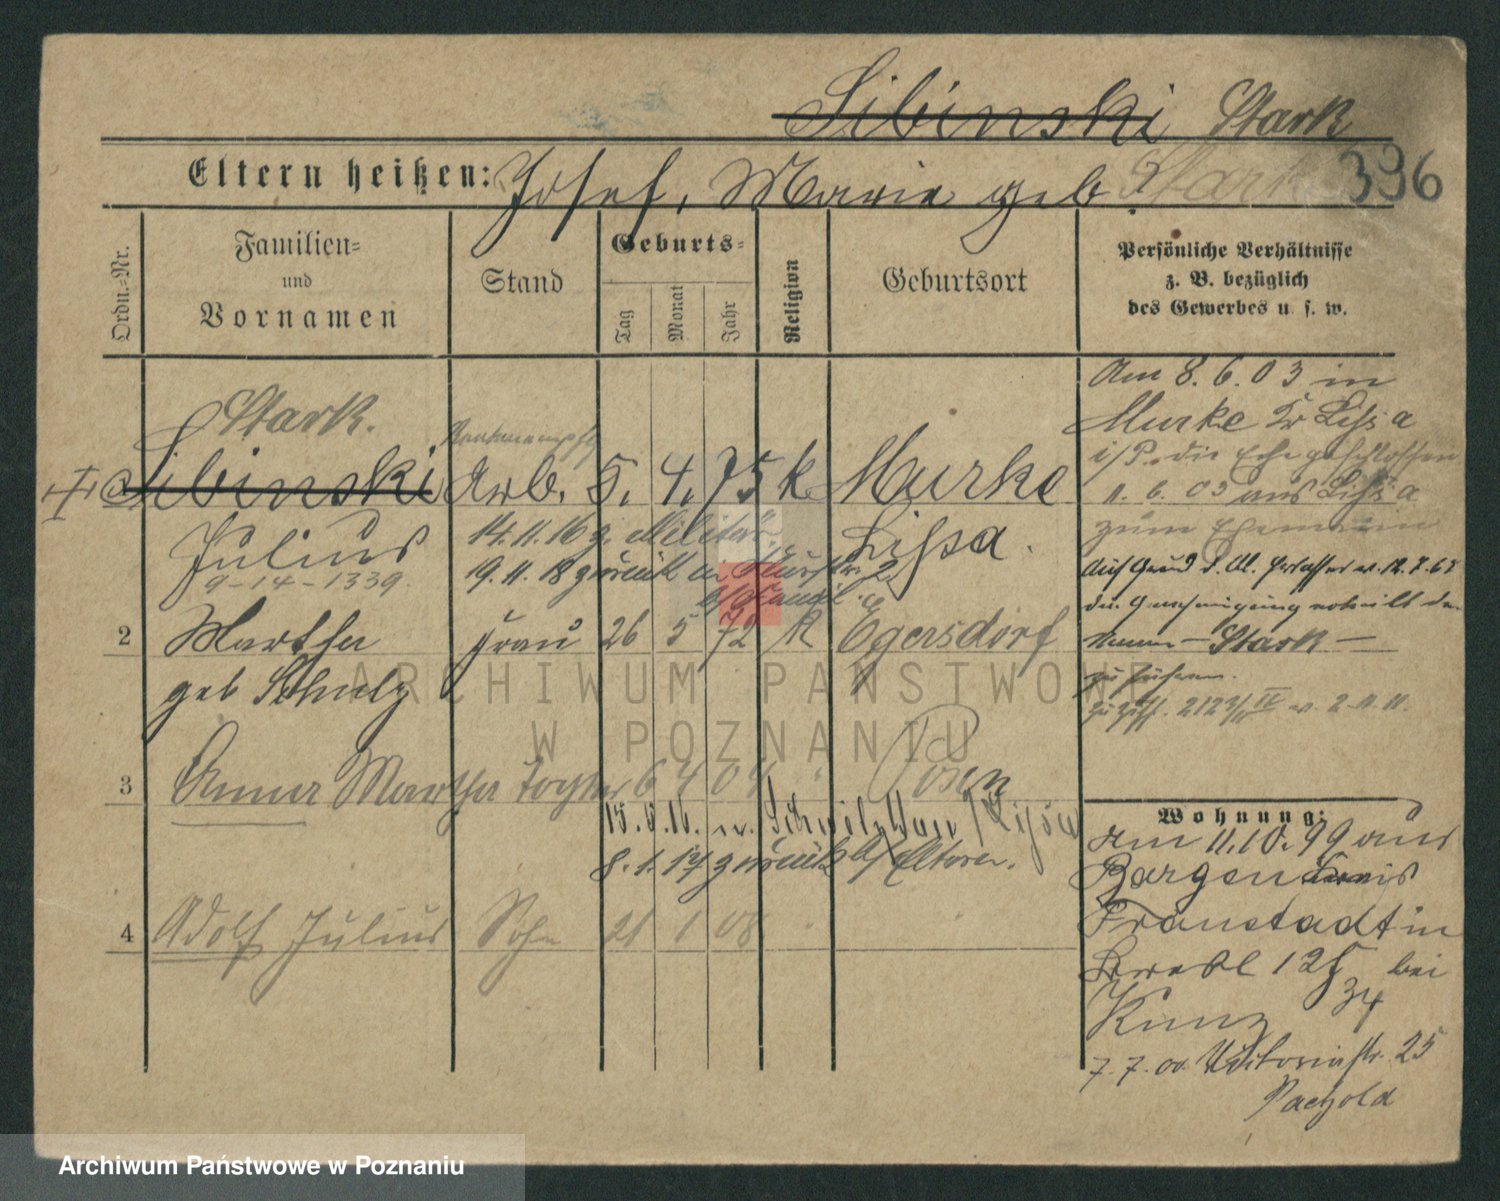 Sibinski Stark
Eltern heißen: Josef, Marie geb. Stark 336
Ordn.=Nr.
Familien=
und
Vornamen
Stand
Geburts=
Tag
Monat
Jahr
Religion
Geburtsort
Persönliche Verhältnisse
z. B. bezüglich
des Gewerbes u. s. w.
Stark.
Sibinski Arb. 5. 4. 75 k Murke
Julius
9-14-1339
14.11.16 z. Militär.
19.11.18 zurück
Lissa.
2 Martha Frau 26 5 72 k Egersdorf
geb Schulz
3 Anna Martha Tochter 6 4 04 Posen
15.5.16. n. /Lissa
8.1.17 zurück b/ Eltern.
4 Adolf Julius Sohn 21 1 08
Am 8.6.03 in
Murke Kr Lissa
i/P. die Ehe geschlossen
11.6.03 aus Lissa
zum Ehemann
Auf Grund d.
den
Namen — Stark —
zu führen.
Wohnung:
Am 11.10.99 aus
Bargen Kreis
Fraustadt in
bei
34
Kunz
7.7.00 Viktoriastr. 25
Paezold
ARCHIWUM PAŃSTWOWE
W POZNANIU
Archiwum Państwowe w Poznaniu